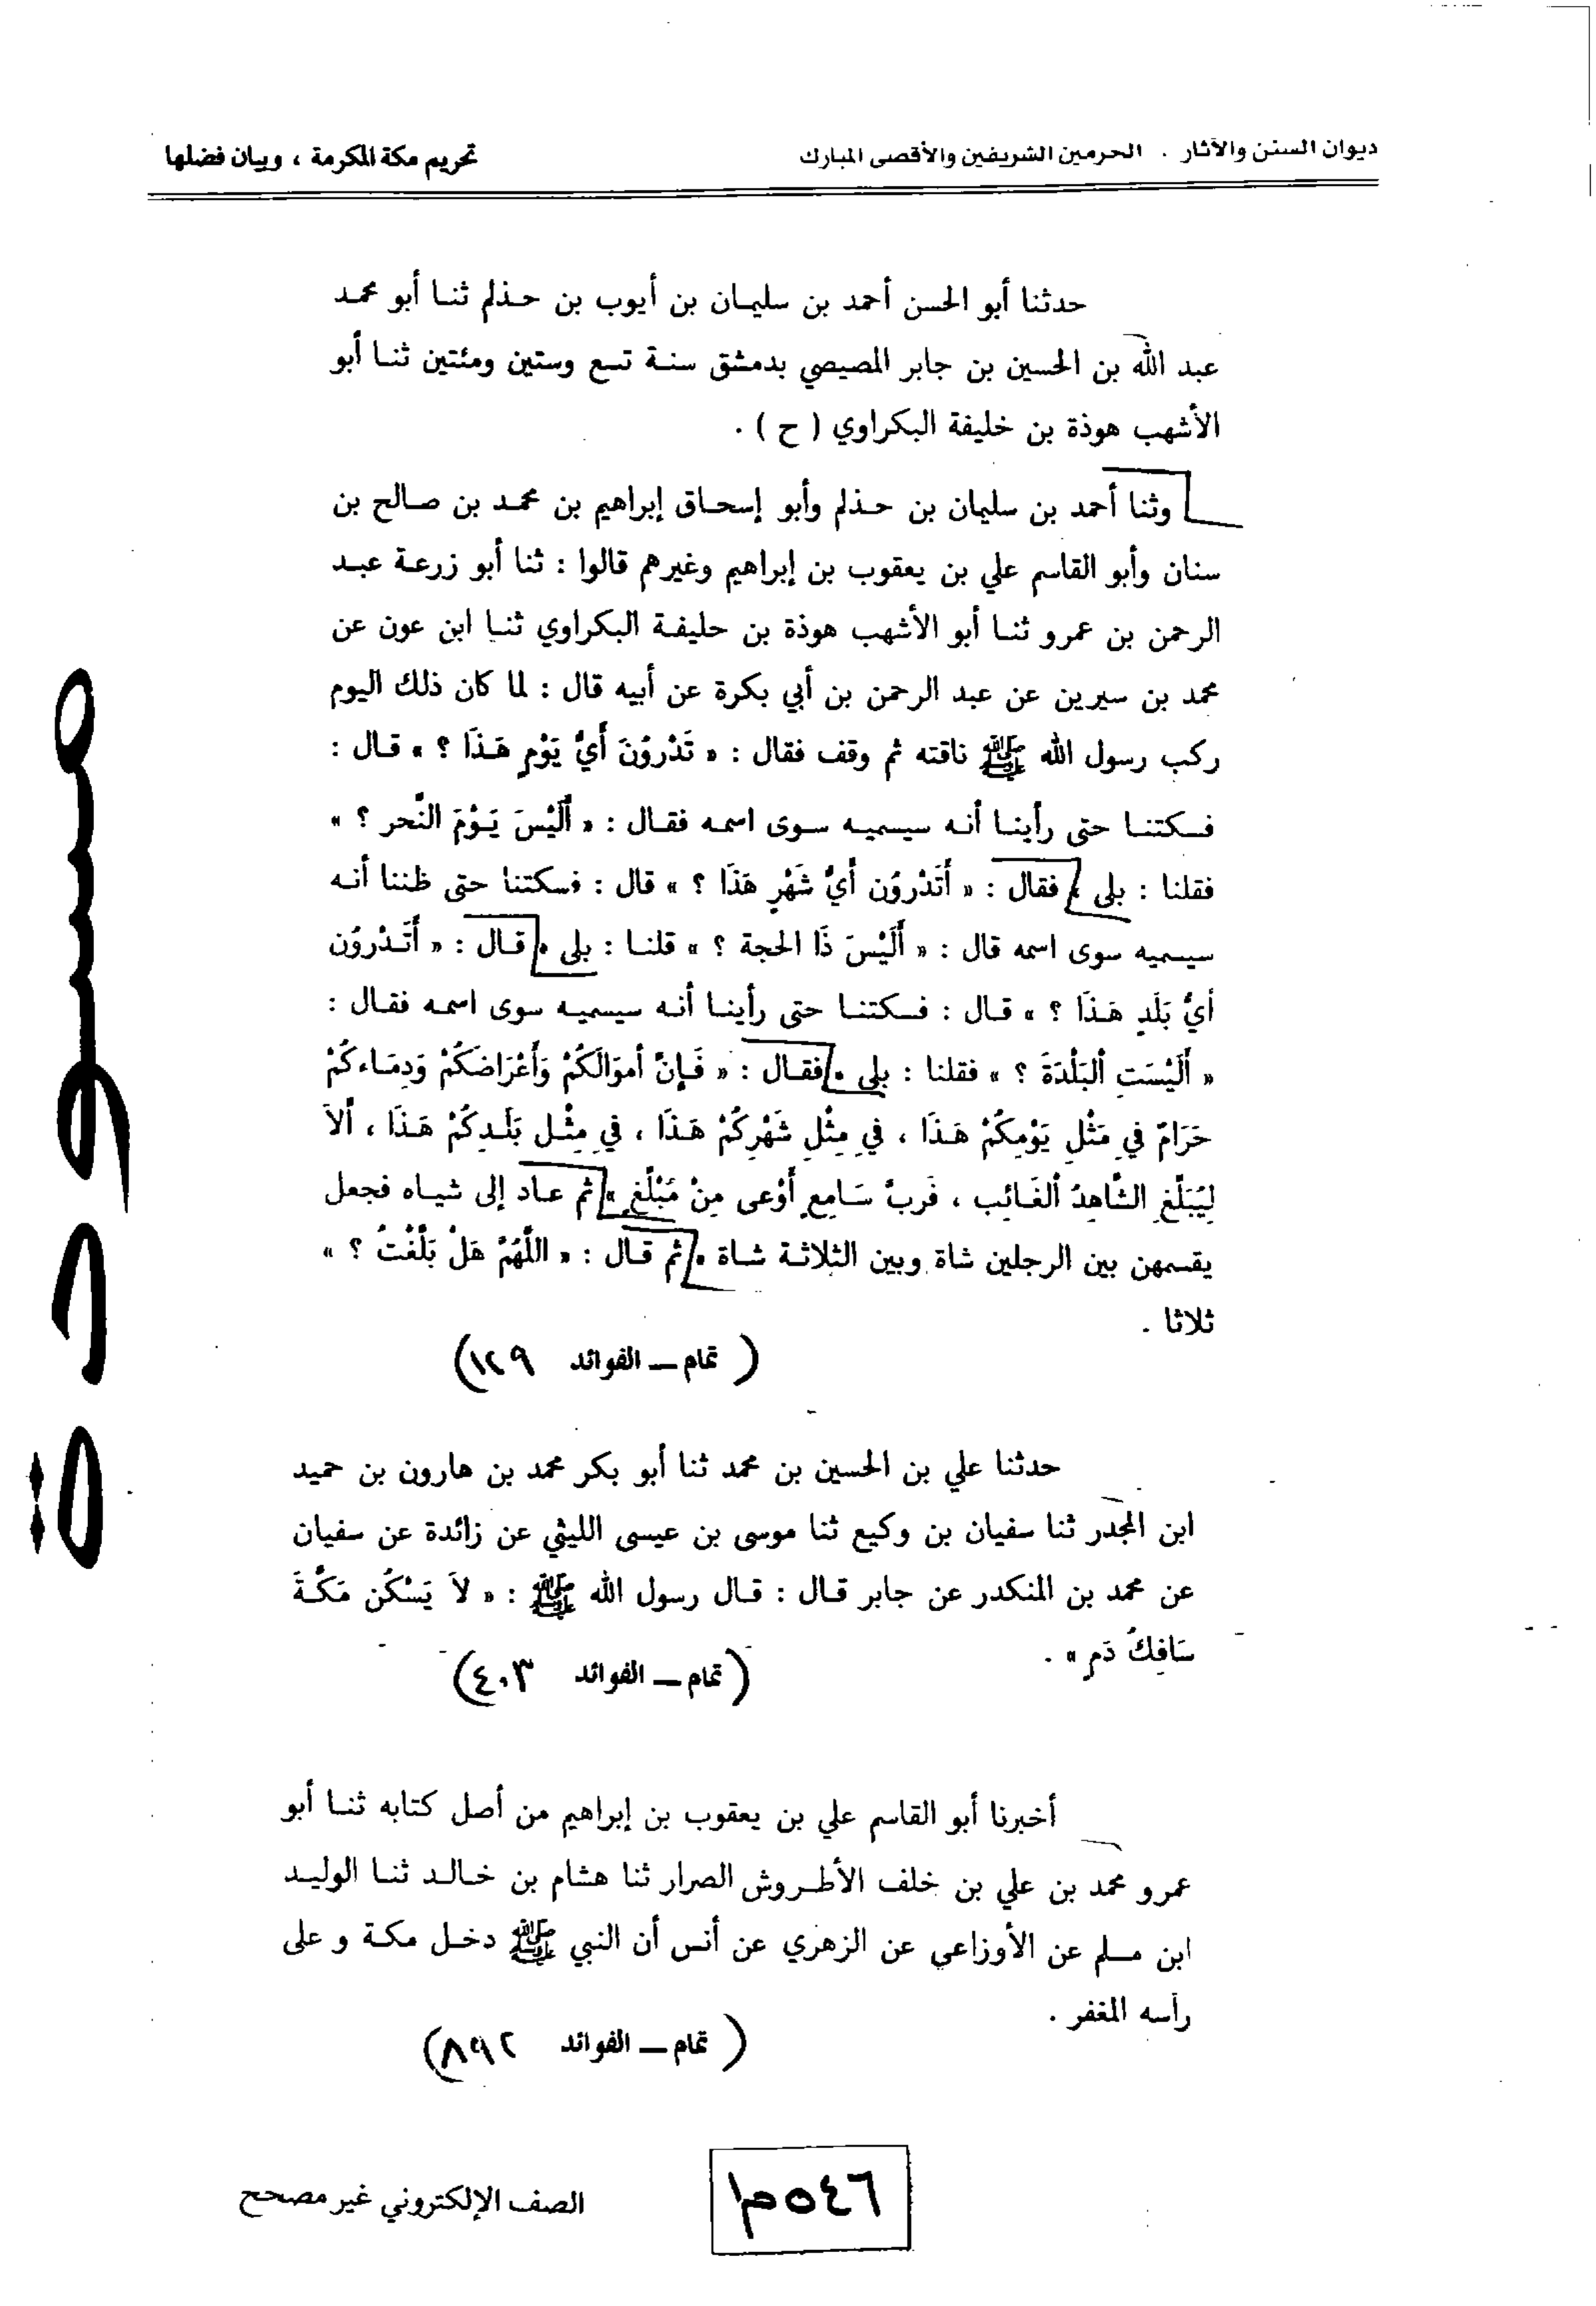 ديوان السنن والآثار . الحرمين الشريفين والأقصى المبارك
تحريم مكة المكرمة ، وبيان فضلها
حدثنا أبو الحسن أحمد بن سليمان بن أيوب بن حذلم ثنا أبو محمد
عبد الله بن الحسين بن جابر المصيصي بدمشق سنة تسع وستين ومئتين ثنا أبو
الأشهب هوذة بن خليفة البكراوي ( ح ) .
وثنا أحمد بن سليمان بن حذلم وأبو إسحاق إبراهيم بن محمد بن صالح بن
سنان وأبو القاسم علي بن يعقوب بن إبراهيم وغيرهم قالوا : ثنا أبو زرعة عبد
الرحمن بن عمرو ثنا أبو الأشهب هوذة بن حليفة البكراوي ثنا ابن عون عن
محمد بن سيرين عن عبد الرحمن بن أبي بكرة عن أبيه قال : لما كان ذلك اليوم
ركب رسول الله ﷺ ناقته ثم وقف فقال : « تَدْروُنَ أَيُّ يَوْمٍ هَذَا ؟ » قال :
فسكتنا حتى رأينا أنه سيسميه سوى اسمه فقال : « أَلَيْسَ يَوْمَ النَّحر ؟ »
فقلنا : بلى . فقال : « أَتَدْروُن أَيُّ شَهْرٍ هَذَا ؟ » قال : فسكتنا حتى ظننا أنه
سيسميه سوى اسمه قال : « أَلَيْسَ ذَا الحجة ؟ » قلنا : بلى . قال : « أَتَدْروُن
أيُّ بَلَدٍ هَذَا ؟ » قال : فسكتنا حتى رأينا أنه سيسميه سوى اسمه فقال :
« أَلَيْسَتِ ألبَلْدَةَ ؟ » فقلنا : بلى . فقال : « فَإِنَّ أموَالَكُمْ وَأَعْرَاضَكُمْ وَدِمَاءكُمْ
حَرَامٌ فِي مَثْلِ يَوْمِكُمْ هَذَا ، فِي مِثْلِ شَهْرِكُمْ هَذَا ، فِي مِثْلِ بَلَدِكُمْ هَذَا ، ألاَ
لِيُبَلِّغِ الشَّاهِدُ ألغَائِب ، فَربَّ سَامِعٍ أَوْعى مِنْ مُبْلِّغٍ » ثم عاد إلى شياه فجعل
يقسمهن بين الرجلين شاة وبين الثلاثة شاة . ثم قال : « اللَّهُمَّ هَلْ بَلَّغْتُ ؟ »
ثلاثا .
( تمام – الفوائد ١٢٩)
حدثنا علي بن الحسين بن محمد ثنا أبو بكر محمد بن هارون بن حميد
ابن المجدر ثنا سفيان بن وكيع ثنا موسى بن عيسى الليثي عن زائدة عن سفيان
عن محمد بن المنكدر عن جابر قال : قال رسول الله ﷺ : « لاَ يَسْكُن مَكَّةَ
سَافِكُ دَمٍ » .
( تمام – الفوائد ٤٠٣)
أخبرنا أبو القاسم علي بن يعقوب بن إبراهيم من أصل كتابه ثنا أبو
عمرو محمد بن علي بن خلف الأطروش الصرار ثنا هشام بن خالد ثنا الوليد
ابن مسلم عن الأوزاعي عن الزهري عن أنس أن النبي ﷺ دخل مكة و على
رأسه المغفر .
( تمام – الفوائد ٨٩٢)
٥٤٦م١
الصف الإلكتروني غير مصحح
مسودة